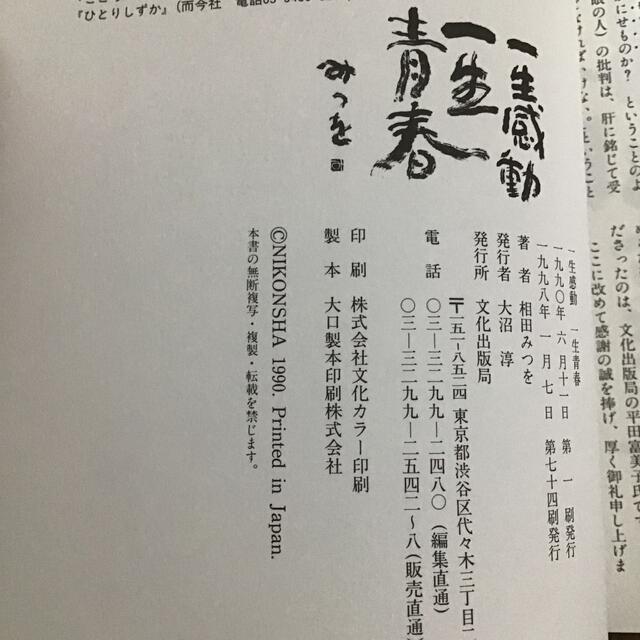 『ひとりしずか』(而今社 電話
一生感動
一生
青春
みつを
一生感動 一生青春
一九九〇年 六月十一日 第一刷発行
一九九八年 一月七日 第七十四刷発行
著者 相田みつを
発行者 大沼 淳
発行所 文化出版局
〒一五一―八五二四 東京都渋谷区代々木三丁目
電話 〇三―三二九九―二四八〇(編集直通)
〇三―三二九九―二五四二~八(販売直通
印刷 株式会社文化カラー印刷
製本 大口製本印刷株式会社
©NIKONSHA 1990. Printed in Japan.
本書の無断複写・複製・転載を禁じます。
かにせものか? ということのよ
眼の人)の批判は、肝に銘じて受
ださったのは、文化出版局の平田富美子氏で
ここに改めて感謝の誠を捧げ、厚く御礼申し上げま